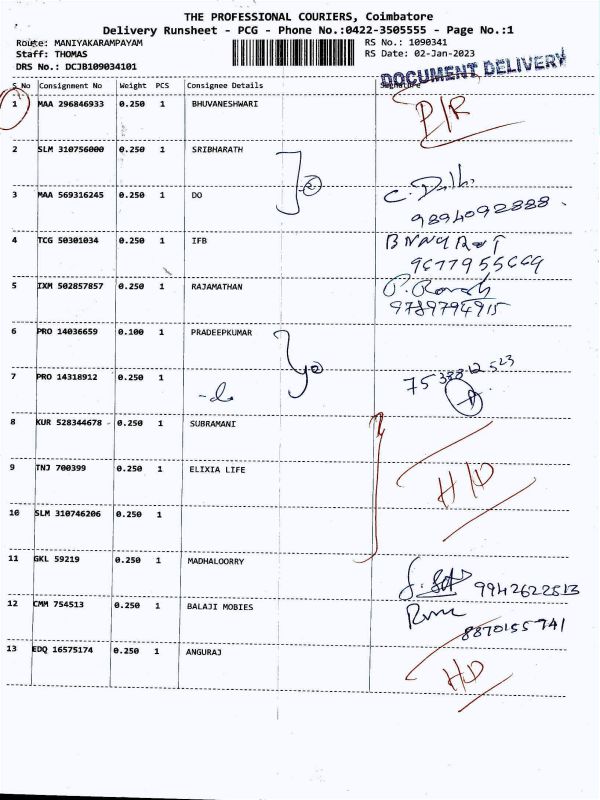 THE PROFESSIONAL COURIERS, Coimbatore
Delivery Runsheet - PCG - Phone No.:0422-3505555 - Page No.:1
Route: MANIYAKARAMPAYAM RS No.: 1090341
Staff: THOMAS RS Date: 02-Jan-2023
DRS No.: DCJB109034101
DOCUMENT DELIVERY
S No Consignment No Weight PCS Consignee Details Signature
1 MAA 296846933 0.250 1 BHUVANESHWARI P/R
2 SLM 310756000 0.250 1 SRIBHARATH
3 MAA 569316245 0.250 1 DO
9894092888
4 TCG 50301034 0.250 1 IFB
9677955669
5 IXM 502857857 0.250 1 RAJAMATHAN
9789794915
6 PRO 14036659 0.100 1 PRADEEPKUMAR
7 PRO 14318912 0.250 1
8 KUR 528344678 0.250 1 SUBRAMANI
9 TNJ 700399 0.250 1 ELIXIA LIFE H/D
10 SLM 310746206 0.250 1
11 GKL 59219 0.250 1 MADHALOORRY
9942622513
12 CMM 754513 0.250 1 BALAJI MOBIES
8870155941
13 EDQ 16575174 0.250 1 ANGURAJ H/D